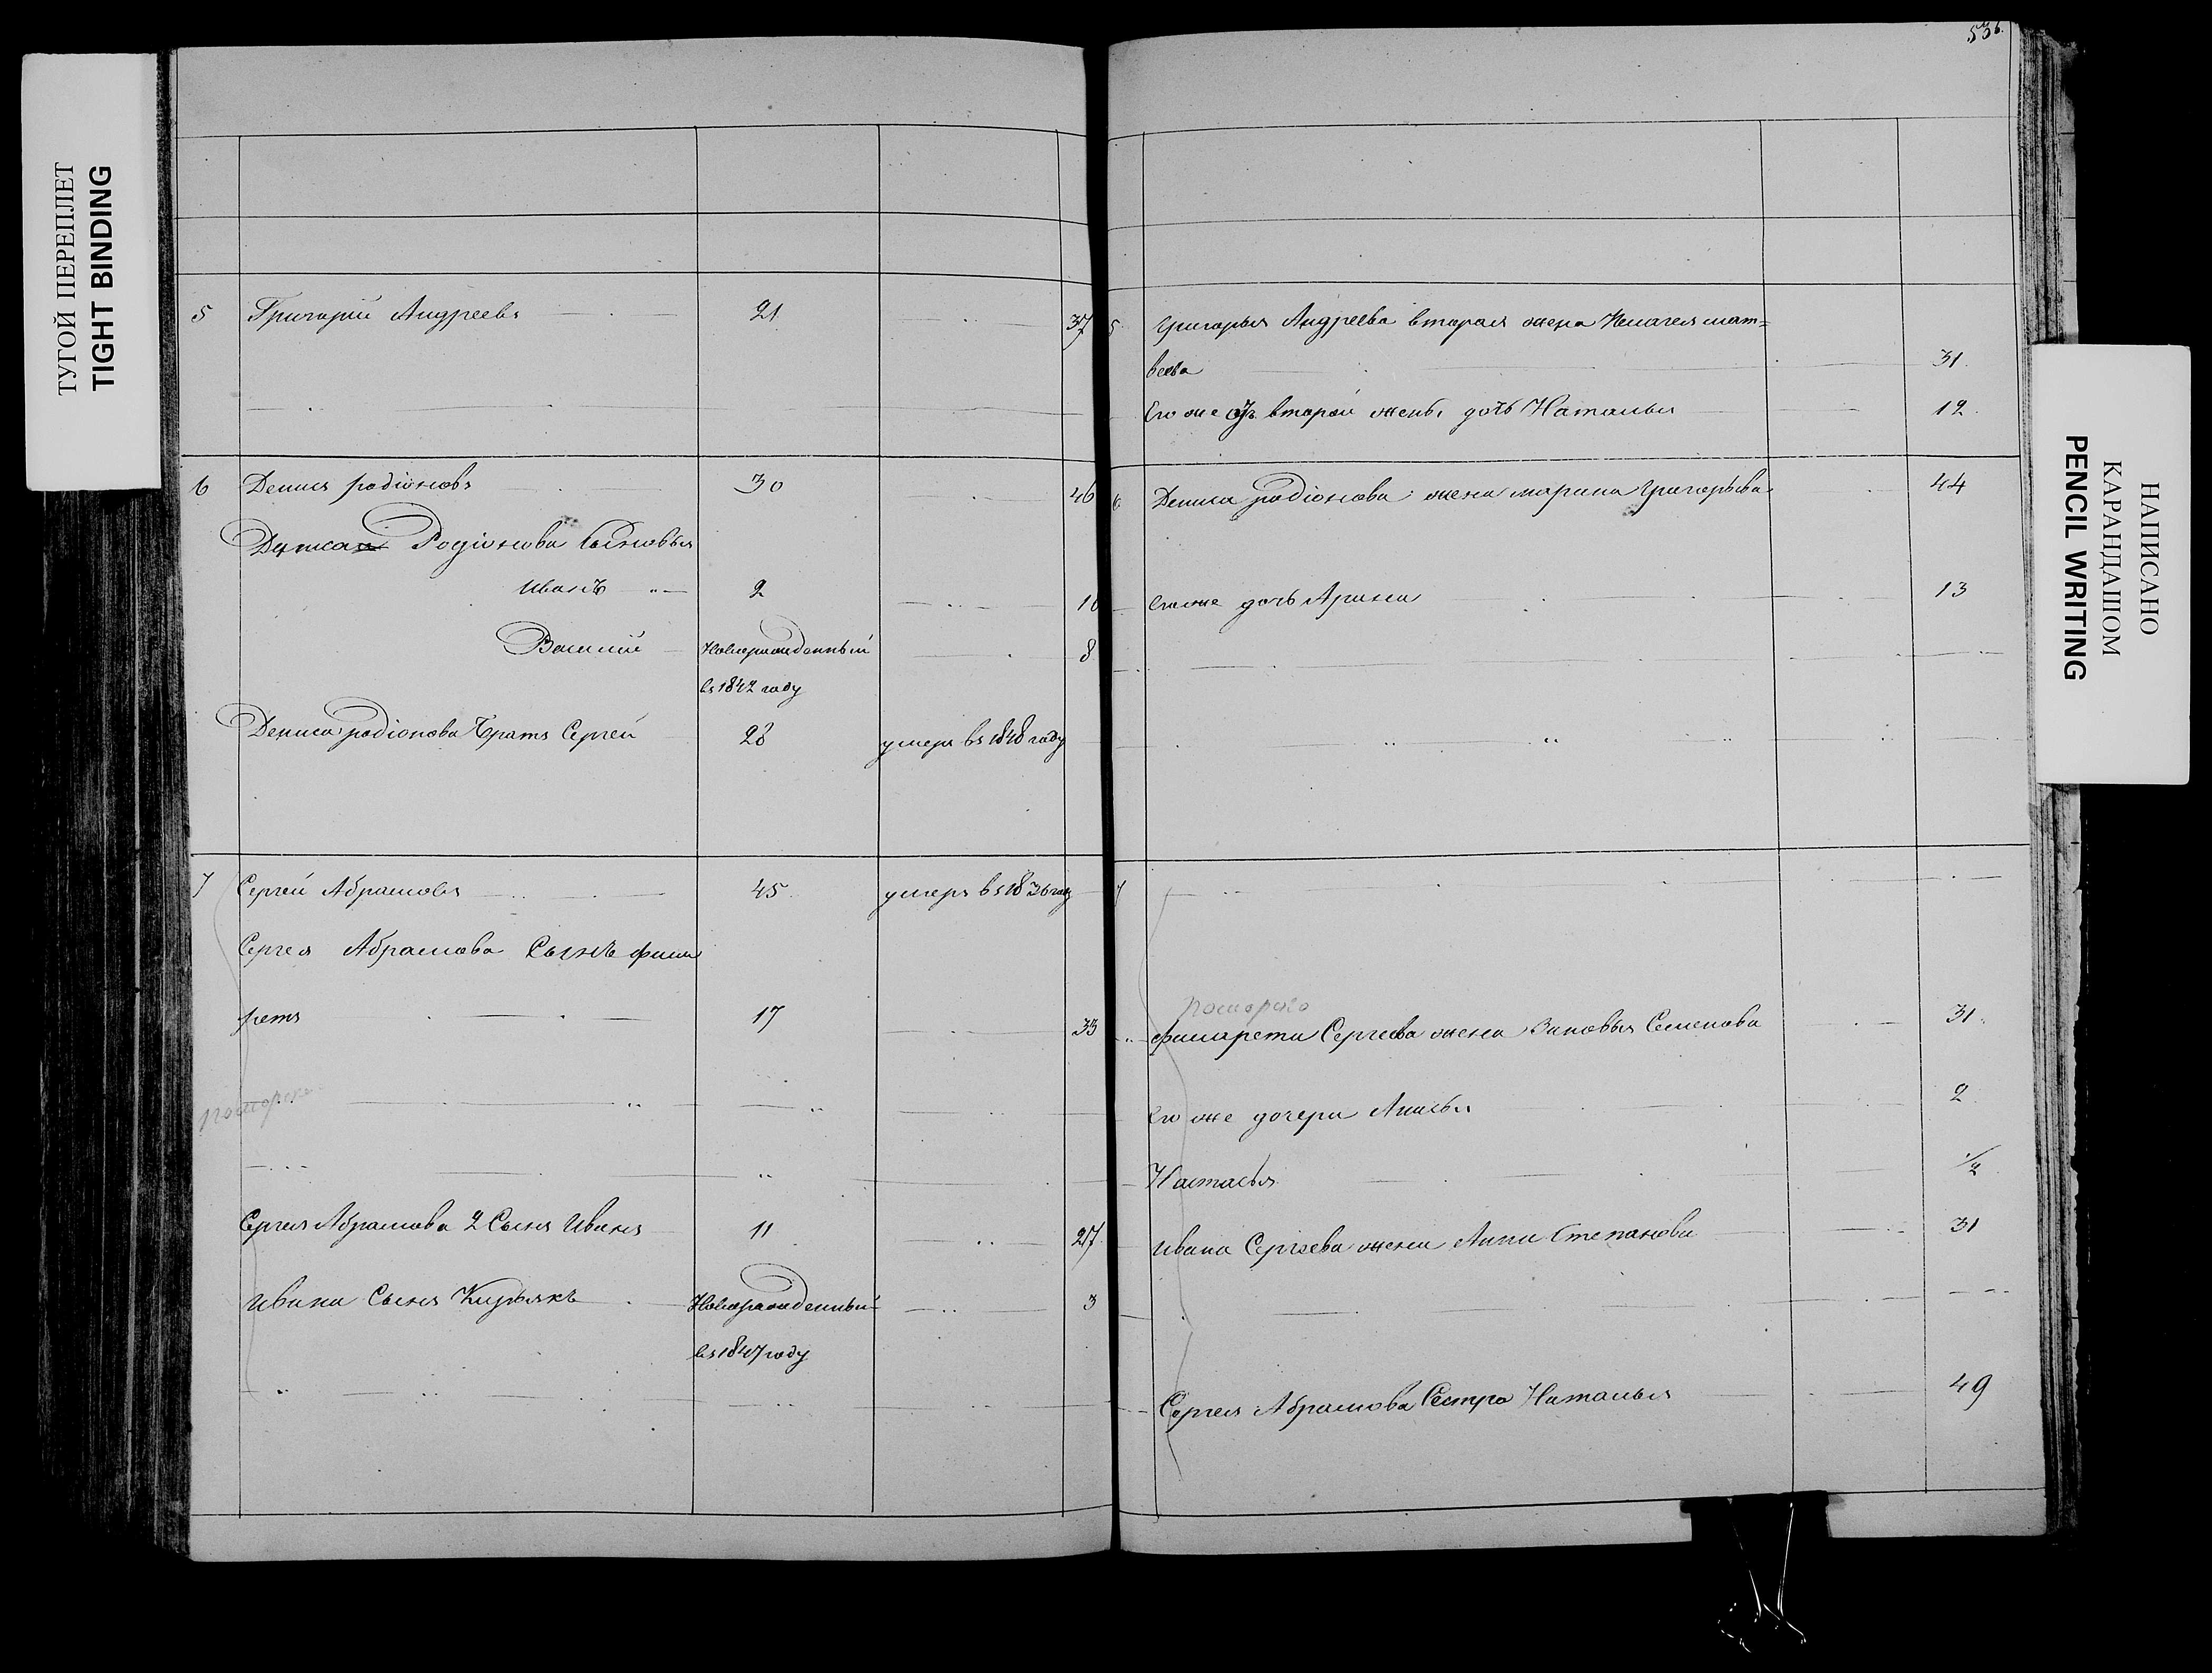 ТУГОЙ ПЕРЕПЛЕТ
TIGHT BINDING
5 Григорій Андреевъ 21 37
6 Денисъ родіоновъ 30 46
Дениса Родіонова Сыновья
Иванъ 2 18
Василий Новорожденный 8
въ 1842 году
Дениса родіонова братъ Сергей 28 умеръ въ 1848 году
7 Сергей Абрамовъ 45 умеръ въ 1836 году
Сергея Абрамова Сынъ фила
ретъ 17 33
поморск
Сергея Абрамова 2 Сынъ Иванъ 11 27
Ивана Сынъ Кирьякъ Новорожденный 3
въ 1847 году
536.
5 Григорья Андреева вторая жена Пелагея мат=
веева 31
Его же отъ второй жены дочь Наталья 12
6 Дениса родіонова жена марина Григорьева 44
Его же дочь Арина 13
7
поморско
филарета Сергеева жена Зиновья Семенова 31
Его же дочери Анисья 2
Настасья 1/2
Ивана Сергеева жена Анна Степанова 31
Сергея Абрамова Сестра Наталья 49
НАПИСАНО
КАРАНДАШОМ
PENCIL WRITING